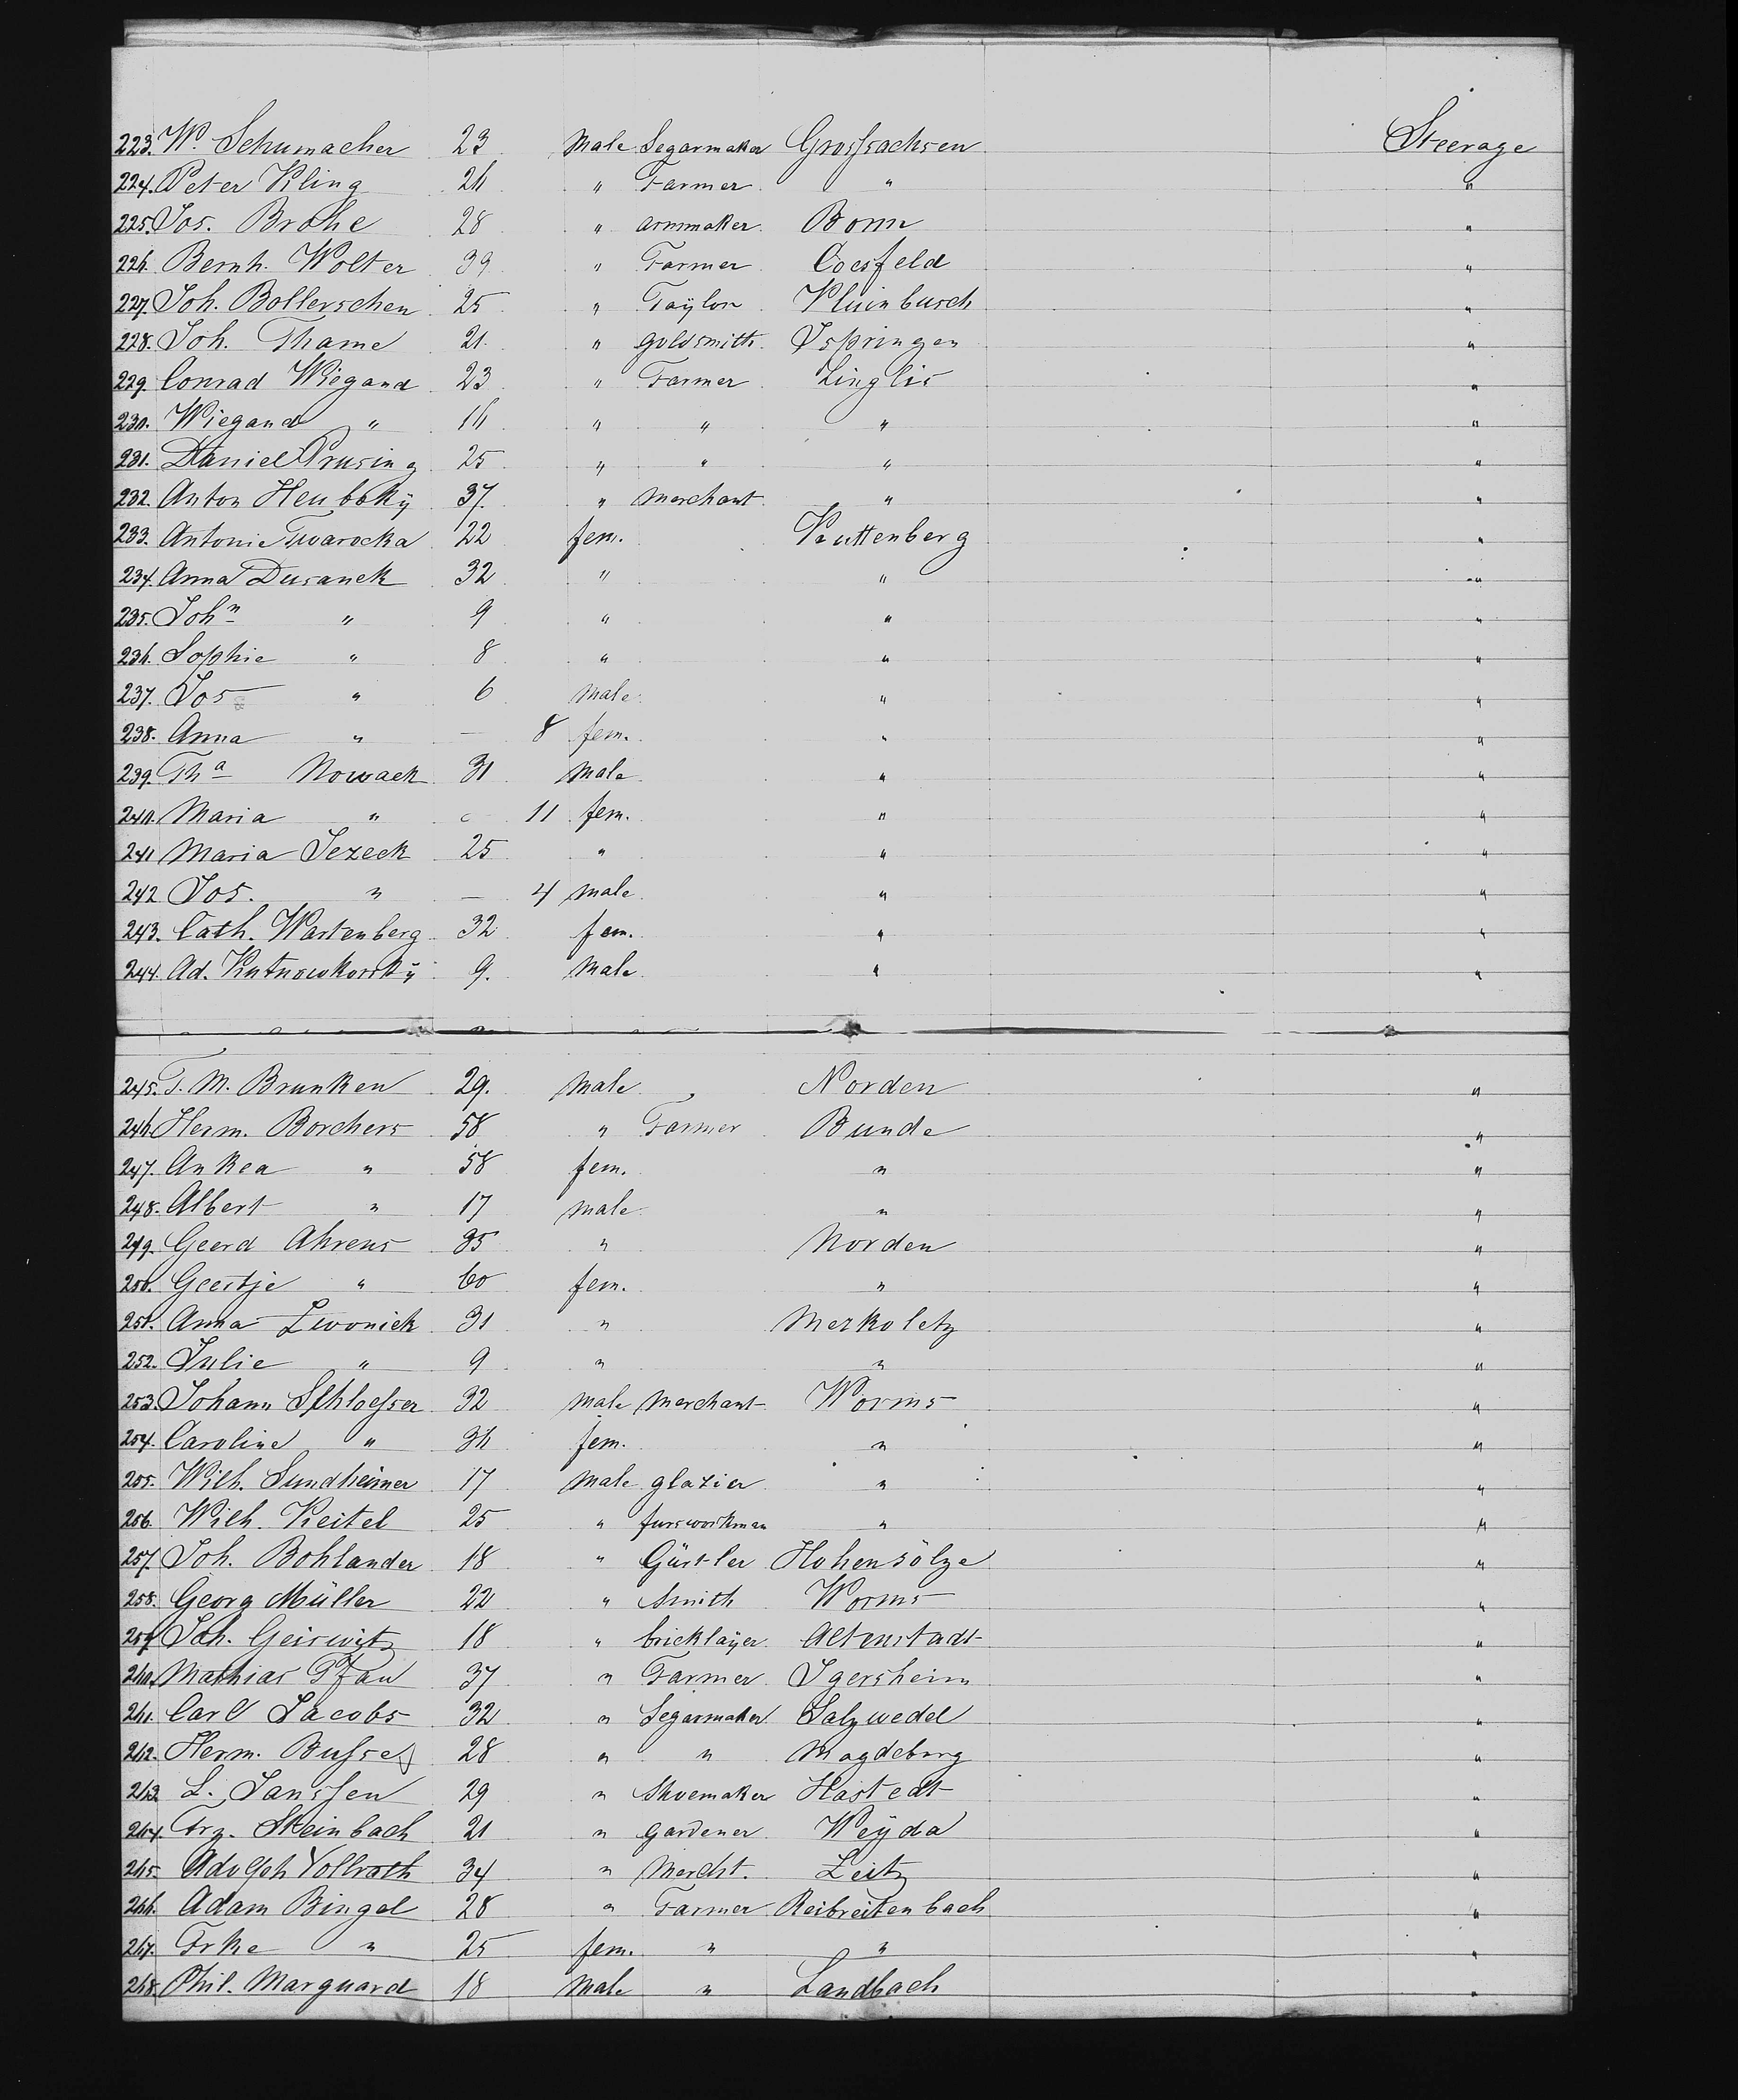 223. Wm. Schumacher 23 Male Segarmaker Grossachsen Steerage
224. Peter Kling 26 " Farmer " "
225. Jos. Brohe 28 " armmaker Bonn "
226. Bernh. Wolter 39 " Farmer Coesfeld "
227. Joh. Bollerschen 25 " Taylor Kluinbusch "
228. Joh. Thame 21 " goldsmith Ispringen "
229. Conrad Wiegand 23 " Farmer Zinglis "
230. Wiegand " 16 " " " "
231. Daniel Prusing 25 " " " "
232. Anton Heubsky 37 " Merchant " "
233. Antonie Twarocka 22 fem. Kuttenberg "
234. Anna Dusanek 32 " " "
235. John " 9 " " "
236. Sophie " 8 " " "
237. Jos " 6 Male " "
238. Anna " — 8 fem. " "
239. Tha Nowack 31 Male " "
240. Maria " — 11 fem. " "
241 Maria Jezeck 25 " " "
242 Jos. " — 4 male " "
243. Cath. Wartenberg 32 fem. " "
244. Ad. Kutnowkorsky 9. Male " "
245. T. M. Brunken 29. Male Norden "
246. Herm. Borchers 58 " Farmer Bunde "
247. Ankea " 58 fem. " "
248. Albert " 17 Male " "
249. Geerd Ahrens 35 " Norden "
250. Geertje " 60 fem. " "
251. Anna Zwonick 31 " Merkoletz "
252. Julie " 9 " " "
253. Johann Schloesser 32 Male Merchant Worms "
254. Caroline " 36 fem. " "
255. Wilh. Sundheimer 17 Male glazier " "
256. Wilh. Keitel 25 " fursworkman " "
257. Joh. Bohlander 18 " Gürtler Hohensölze "
258. Georg Müller 22 " Smith Worms "
259. Joh. Geiswitz 18 " bricklayer Altenstadt "
260. Mathias Pfau 37 " Farmer Igersheim "
261. Carl Jacobs 32 " Segarmaker Salzwedel "
262. Herm. Busse 28 " " Magdeburg "
263. L. Janssen 29 " Shoemaker Hastedt "
264. Frz. Steinbach 21 " Gardener Weyda "
265. Adolph Vollrath 34 " Mercht. Zeitz "
266. Adam Bingel 28 " Farmer Reibreitenbach "
267. Frke " 25 fem. " " "
268. Phil. Marquard 18 Male " Landbach "